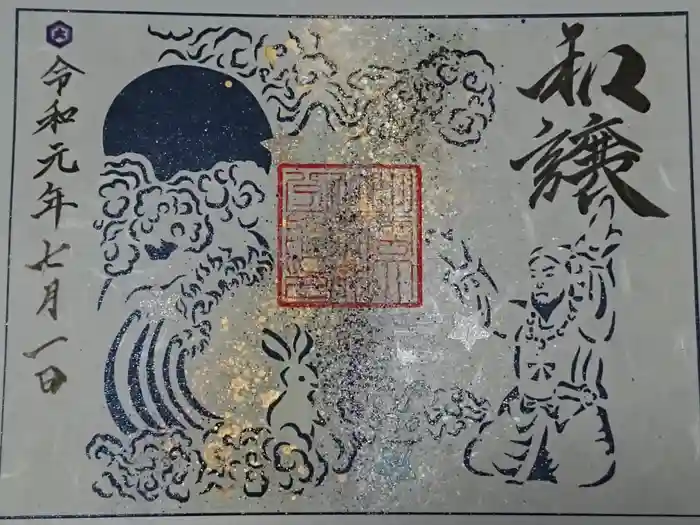 和譲
令和元年七月一日